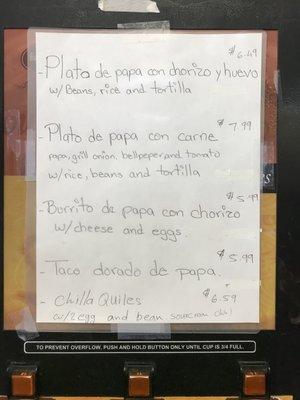 $6.49
- Plato de papa con chorizo y huevo
w/ Beans, rice and tortilla
$7.99
- Plato de papa con carne
papa, grill onion, bellpeper, and tomato
w/ rice, beans and tortilla
$5.99
- Burrito de papa con chorizo
w/ cheese and eggs.
$5.99
- Taco dorado de papa.
$6.59
- Chilla Quiles
w/ 2 egg and bean sourcream
TO PREVENT OVERFLOW, PUSH AND HOLD BUTTON ONLY UNTIL CUP IS 3/4 FULL.